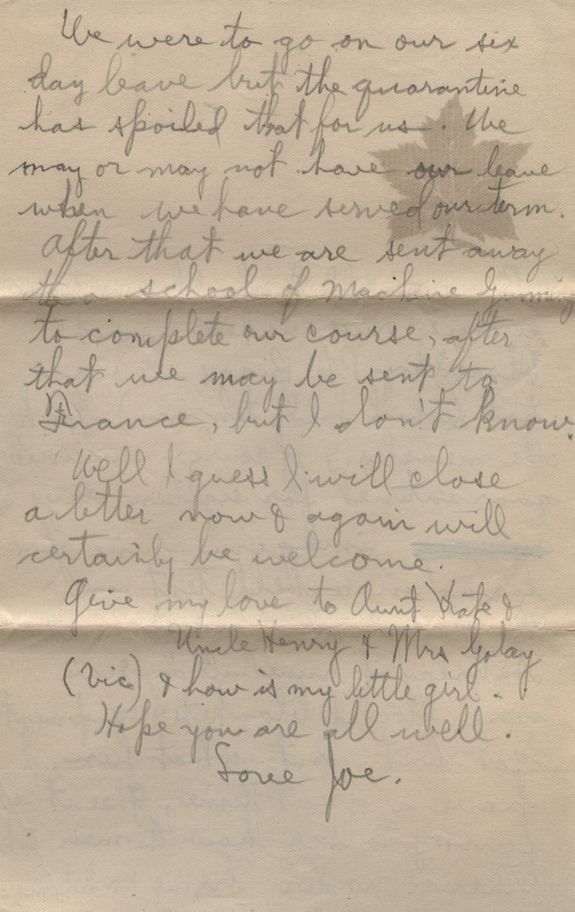 We were to go on our six
day leave but the quarantine
has spoiled that for us. We
may or may not have our leave
when we have served our term.
After that we are sent away
to a school of Machine Gunning
to complete our course, after
that we may be sent to
France, but I don't know.
Well I guess I will close
a letter now & again will
certainly be welcome.
Give my love to Aunt Kate &
Uncle Henry & Mrs Golay
(Vic) & how is my little girl.
Hope you are all well.
Love Joe.